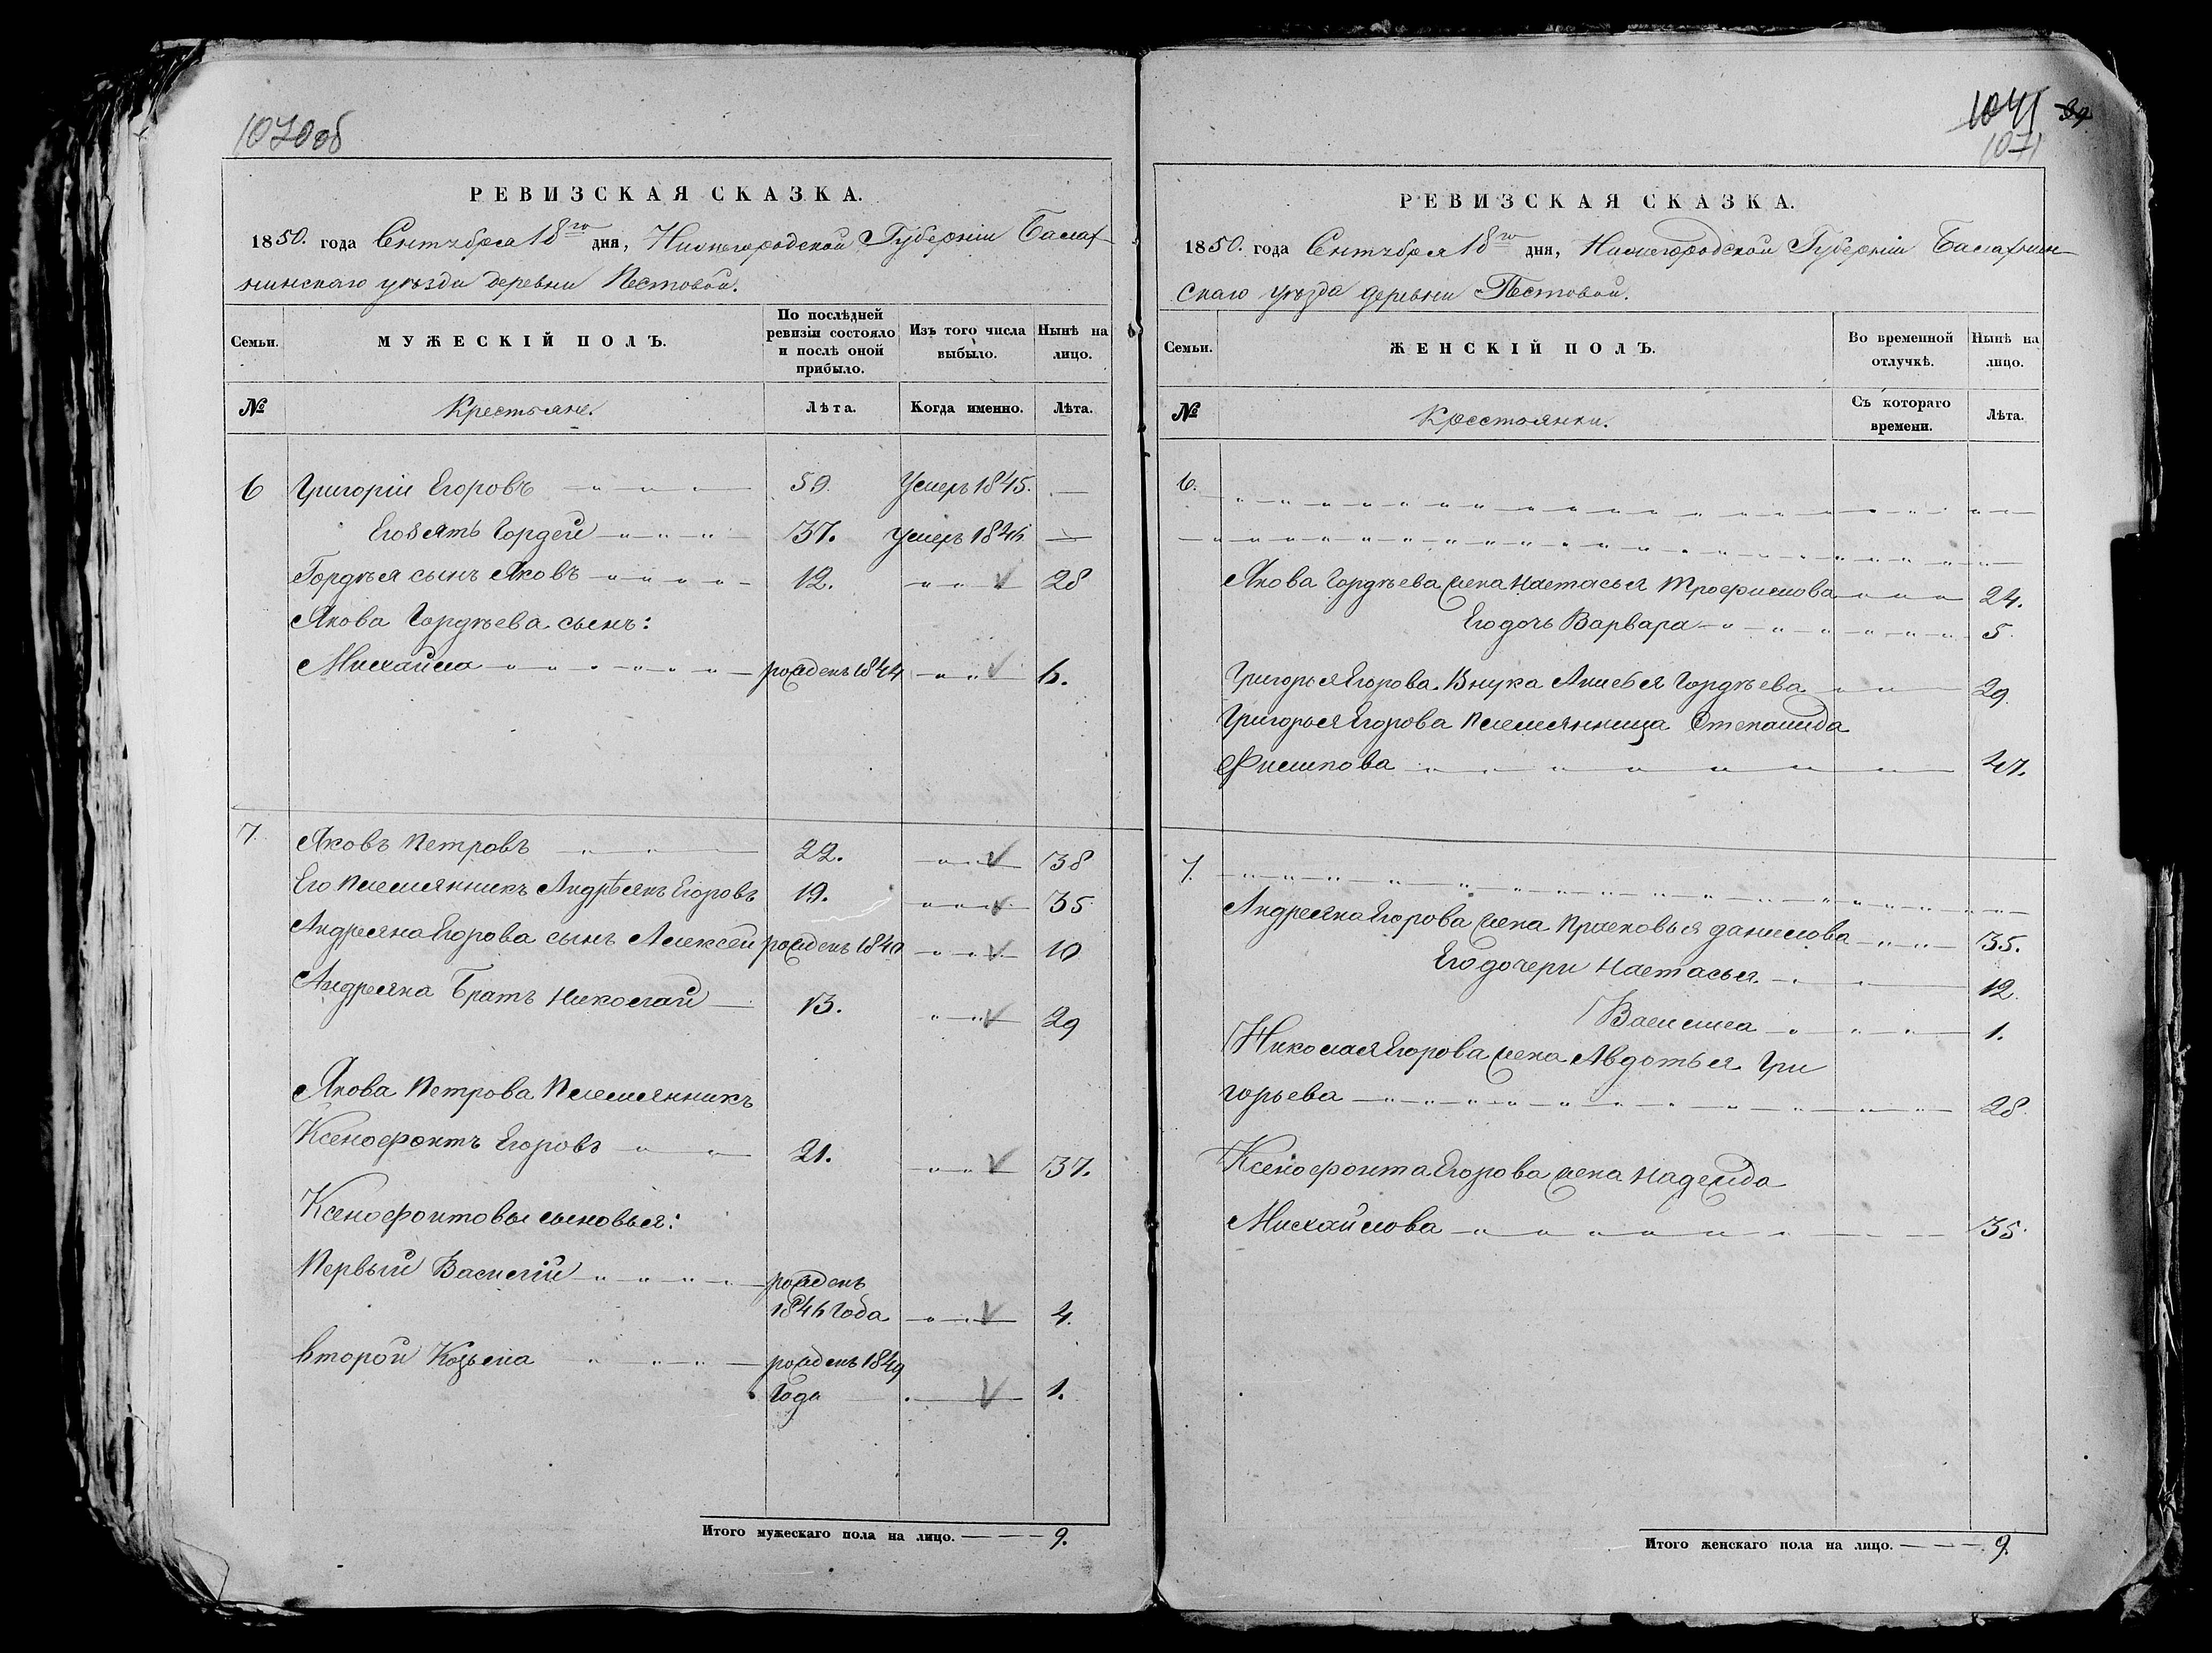 1070об
РЕВИЗСКАЯ СКАЗКА.
1850. года Сентября 18го дня, Нижегородской Губерніи Балах-
нинскаго уѣзда деревни Пестовой.
Семьи.
МУЖЕСКІЙ ПОЛЪ.
По послѣдней ревизіи состояло и послѣ оной прибыло.
Изъ того числа выбыло.
Нынѣ на лицо.
№ Крестьяне. Лѣта. Когда именно. Лѣта.
6 Григорій Егоровъ 59. Умеръ 1845. —
Его зять Гордей 37. умеръ 1846 —
Гордѣя сынъ Яковъ 12. 28
Якова Гордѣева сынъ:
Михайла рожденъ 1844 6.
7. Яковъ Петровъ 22. 38
Его племянникъ Андреянъ Егоровъ 19. 35
Андреяна Егорова сынъ Алексей рожденъ 1840 10
Андреяна Братъ Николай 13. 29
Якова Петрова Племянникъ
Ксенофонтъ Егоровъ 21. 37.
Ксенофонтовы сыновья:
Первый Василій рожденъ
1846 года 4.
Второй Козьма рожденъ 1849
Года 1.
Итого мужескаго пола на лицо. 9.
1041 39
1071
РЕВИЗСКАЯ СКАЗКА.
1850. года Сентября 18го дня, Нижегородской Губерніи Балахнин-
скаго уѣзда деревни Пестовой.
Семьи.
ЖЕНСКІЙ ПОЛЪ.
Во временной отлучкѣ.
Нынѣ на лицо.
№ Крестьянки. Съ котораго времени. Лѣта.
6.
Якова Гордѣева жена Настасья Трофимова 24.
Его дочь Варвара 5.
Григорья Егорова Внука Анисья Гордѣева 29.
Григорья Егорова племянница Степанида
Филипова 47.
7.
Андреяна Егорова жена Прасковья Данилова 35.
Его дочери Настасья 12.
Василиса 1.
Николая Егорова жена Авдотья Гри
горьева 28.
Ксенофонта Егорова жена Надежда
Михайлова 35.
Итого женскаго пола на лицо. 9.